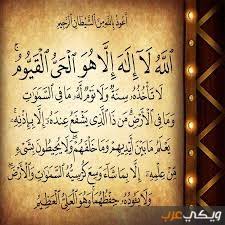 أعوذ بالله من الشيطان الرجيم
ٱللَّهُ لَآ إِلَٰهَ إِلَّا هُوَ ٱلْحَىُّ ٱلْقَيُّومُ ۚ
لَا تَأْخُذُهُۥ سِنَةٌ وَلَا نَوْمٌ ۚ لَّهُۥ مَا فِى ٱلسَّمَٰوَٰتِ
وَمَا فِى ٱلْأَرْضِ ۗ مَن ذَا ٱلَّذِى يَشْفَعُ عِندَهُۥٓ إِلَّا بِإِذْنِهِۦ ۚ
يَعْلَمُ مَا بَيْنَ أَيْدِيهِمْ وَمَا خَلْفَهُمْ ۖ وَلَا يُحِيطُونَ بِشَىْءٍ
مِّنْ عِلْمِهِۦٓ إِلَّا بِمَا شَآءَ ۚ وَسِعَ كُرْسِيُّهُ ٱلسَّمَٰوَٰتِ وَٱلْأَرْضَ ۖ
وَلَا يَـُٔودُهُۥ حِفْظُهُمَا ۚ وَهُوَ ٱلْعَلِىُّ ٱلْعَظِيمُ
ويكي عرب